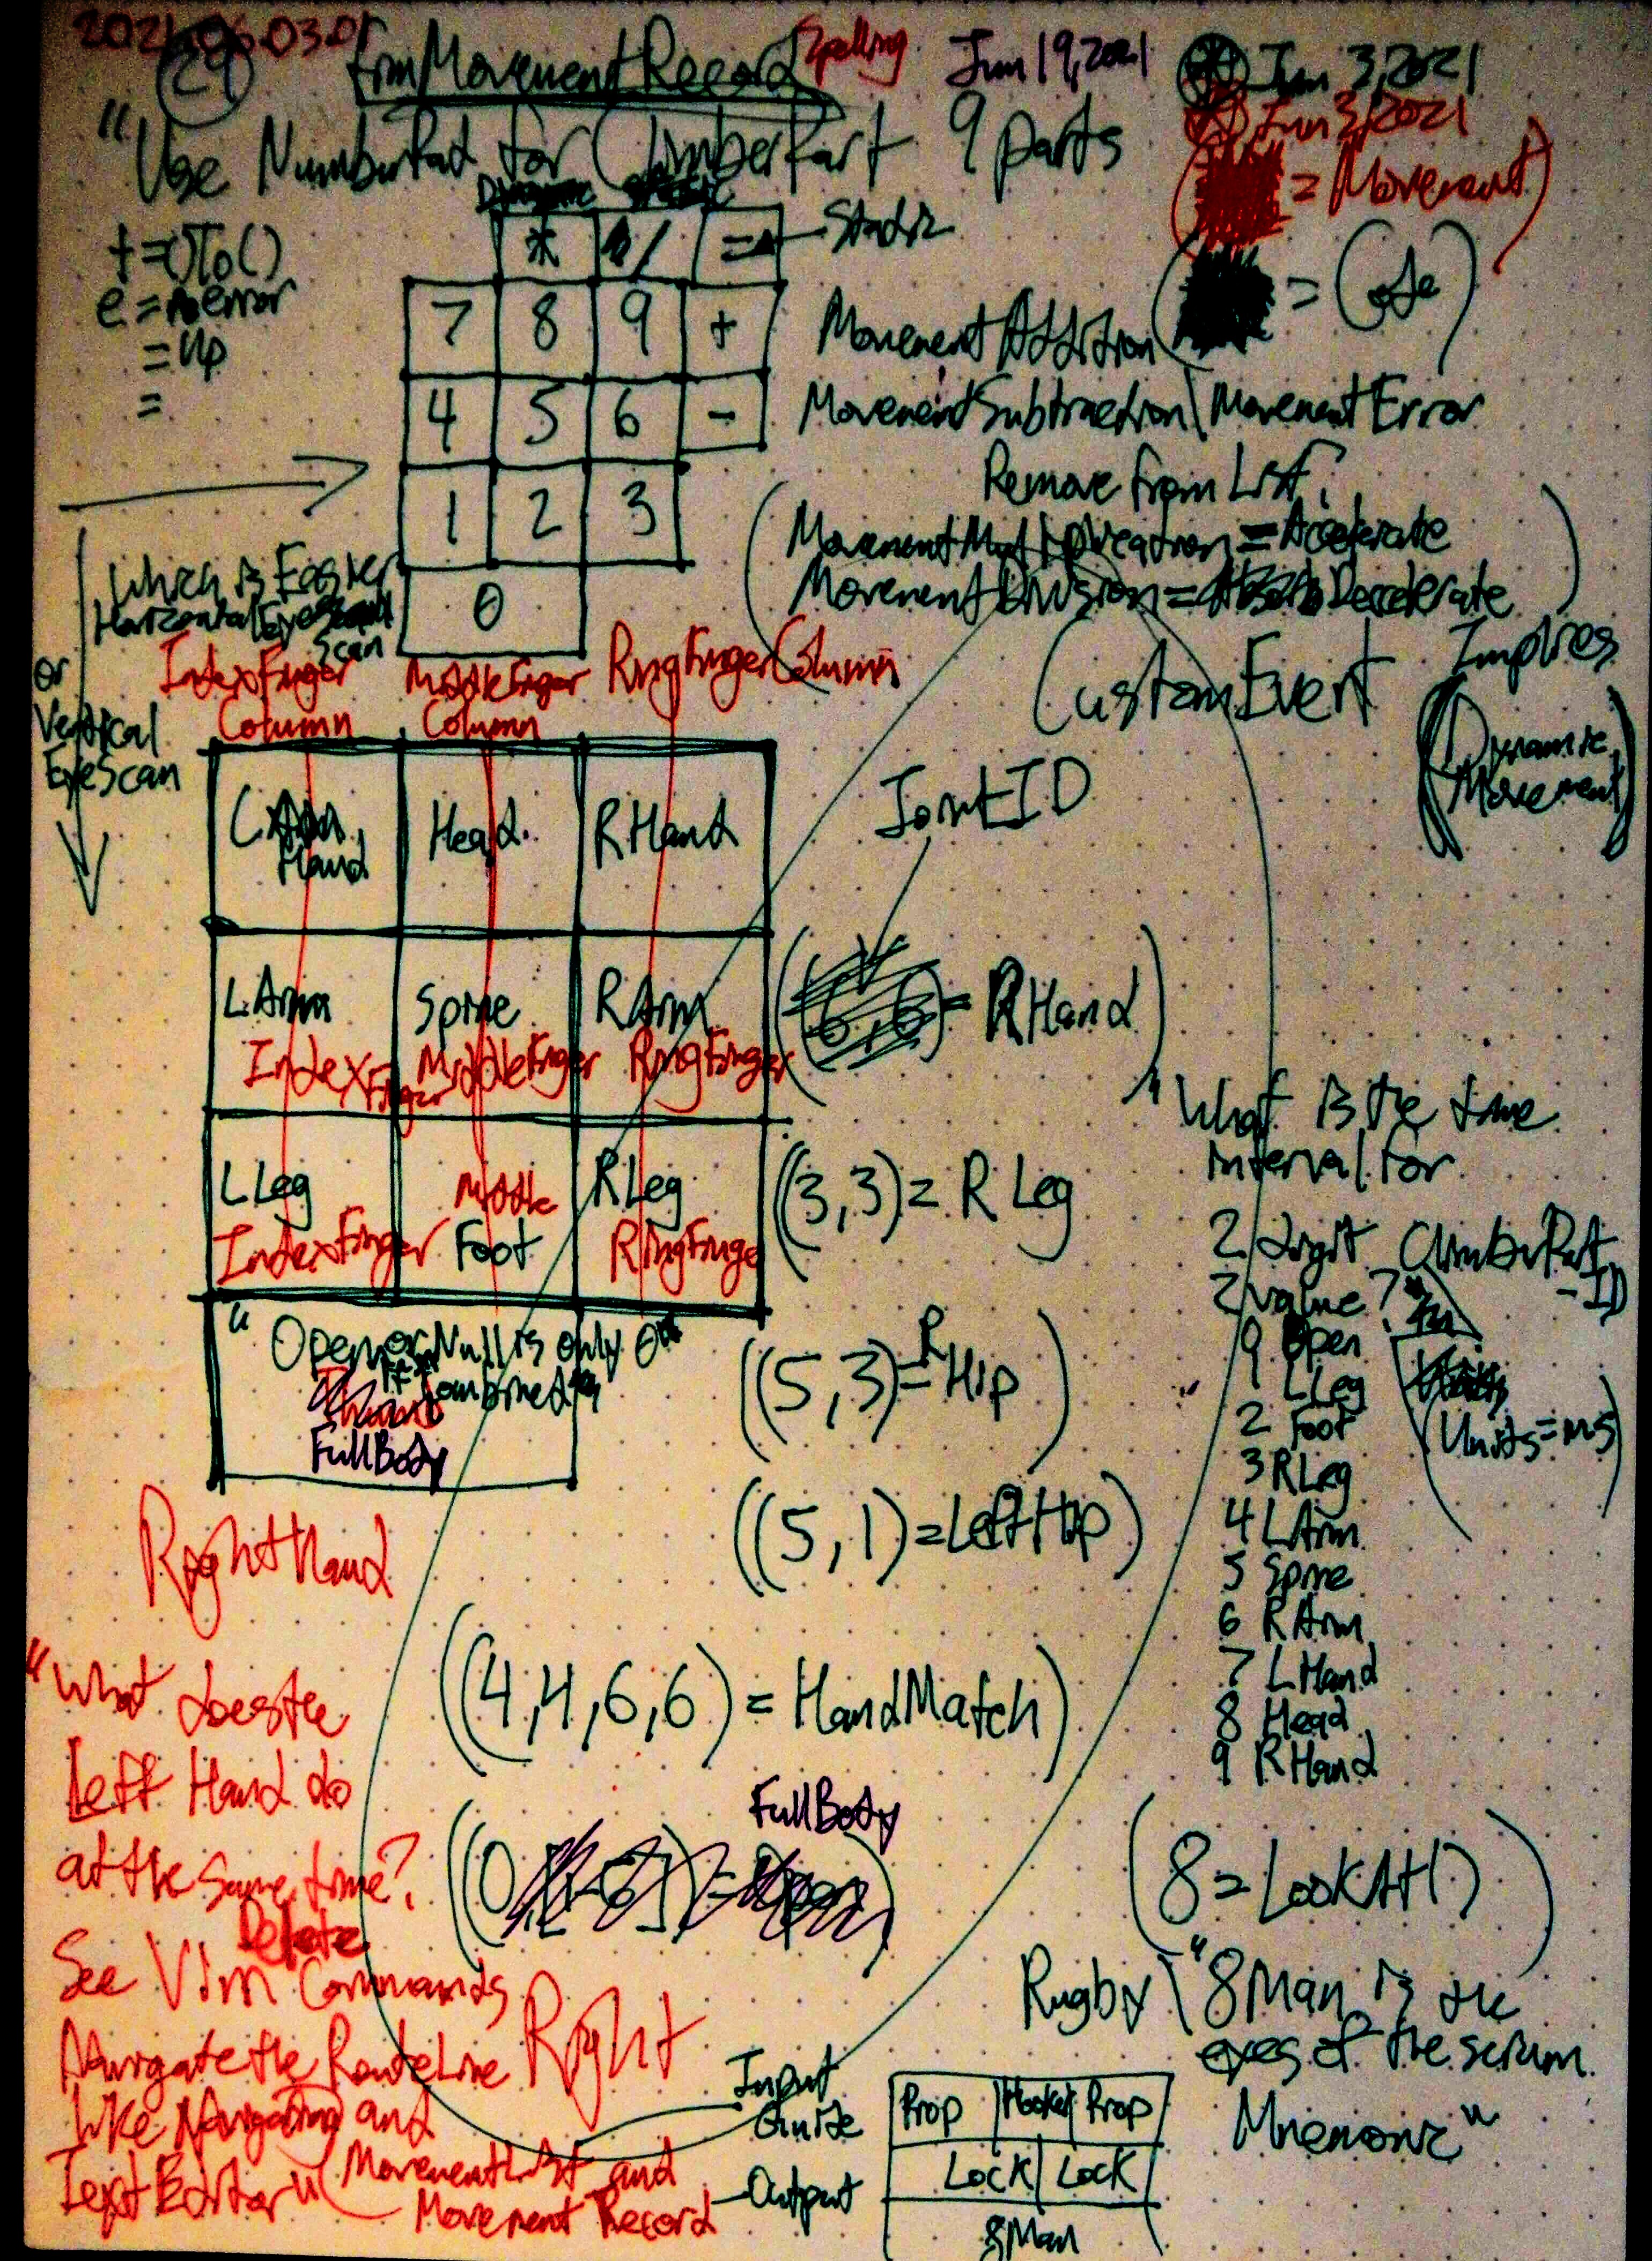 2021.06.03.01
29
frmMovementRecord
Spelling
Jun 19, 2021
Jun 3, 2021
Jun 3, 2021
"Use NumberPad for ClimberPart 9 parts
= Movement)
= Code)
* / = Static
+ = To()
e = error
= Up
=
7 8 9 + Movement Addition
4 5 6 - MovementSubtraction \ MovementError
Remove from List?
1 2 3
(MovementMultiplication = Accelerate
MovementDivision = Deccelerate)
0
Which is Easier
Horizontal Eye
Scan
or
Vertical
EyeScan
CustomEvent
Implies
(Dynamic
Movement)
IndexFinger
Column
MiddleFinger
Column
RingFingerColumn
L
Hand
Head
RHand
JointID
LArm
Spine
RArm
IndexFinger
MiddleFinger
RingFinger
(6,6) = RHand)
LLeg
Middle
RLeg
IndexFinger
Foot
RingFinge
((3,3) = R Leg
"Open or Null is only 0"
If Combined
FullBody
((5,3) = R Hip)
((5,1) = LeftHip)
"What is the time
interval for
2 digit ClimberPart
-ID
2 value?"
0 Open
1 LLeg
2 Foot
3 RLeg
4 LArm
5 Spine
6 RArm
7 LHand
8 Head
9 RHand
(Units = ms)
RightHand
((4,4,6,6) = HandMatch)
"What does the
Left Hand do
at the same time?
FullBody
((0
(8 = LookAt())
Delete
See Vim Commands
Navigate the RouteLine Right
like Navigating and
Text Editor"
MovementList and
Movement Record
Input
Guide
Output
Rugby \ "8Man is the
eyes of the scrum.
Mnemonic"
Prop | Hooker | Prop
Lock | Lock
8Man